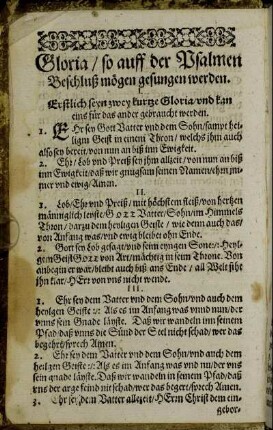 Gloria / so auff der Psalmen
Beschluß mögen gesungen werden.
I.
Erstlich seyn zwey kurtze Gloria/ vnd kan
eins für das ander gebraucht werden.
1. EHr sey Gott Vatter vnd dem Sohn/ sampt heili-
gen Geist in einem Thron/ welchs jhm auch
also sey bereit/ von nun an biß inn Ewigkeit.
2. Ehr/ Lob vnd Preiß sey jhm allzeit/ von nun an biß
inn Ewigkeit/ daß wir gnugsam seinen Namen/ ehrn jm-
mer vnd ewig/ Amen.
II.
1. Lob/ Ehr vnd Preiß/ mit höchstem fleiß/ von hertzen
männiglich leyste/ GOTT Vatter/ Sohn/ im Himmels
Thron/ darzu dem heyligen Geiste/ wie denn auch das/
von Anfang was/ vnd ewig bleibet ohn Ende.
2. Gott sey Lob gesagt/ vnd seim eyngen Sone/ Heyli-
gem Geist GOTT von Art/ mächtig in seim Throne. Von
anbegin er war/ bleibt auch biß ans Ende / all Welt siht
jhn klar/ HErr von vns nicht wende.
III.
1. Ehr sey dem Vatter vnd dem Sohn/ vnd auch dem
heyligen Geiste :/: Als es im Anfang was vnnd nun/ der
vnns sein Gnade läyste. Daß wir wandeln inn seinem
Pfad/ daß vnns die Sünd der Seel nicht schad/ wer das
begehrt/ sprech Amen.
2. Ehr sey dem Vatter vnd dem Sohn/ vnd auch dem
heyligen Geiste :/: Als es im Anfang was vnd nu/ der vns
sein gnade läyste. Daß wir wandeln in seinem Pfad/ daß
vns der arge feind nit schad/ wer das begert/ sprech Amen.
3. Ehr sey dem Vatter allezeit/ HErrn Christ dem ein-
gebor-